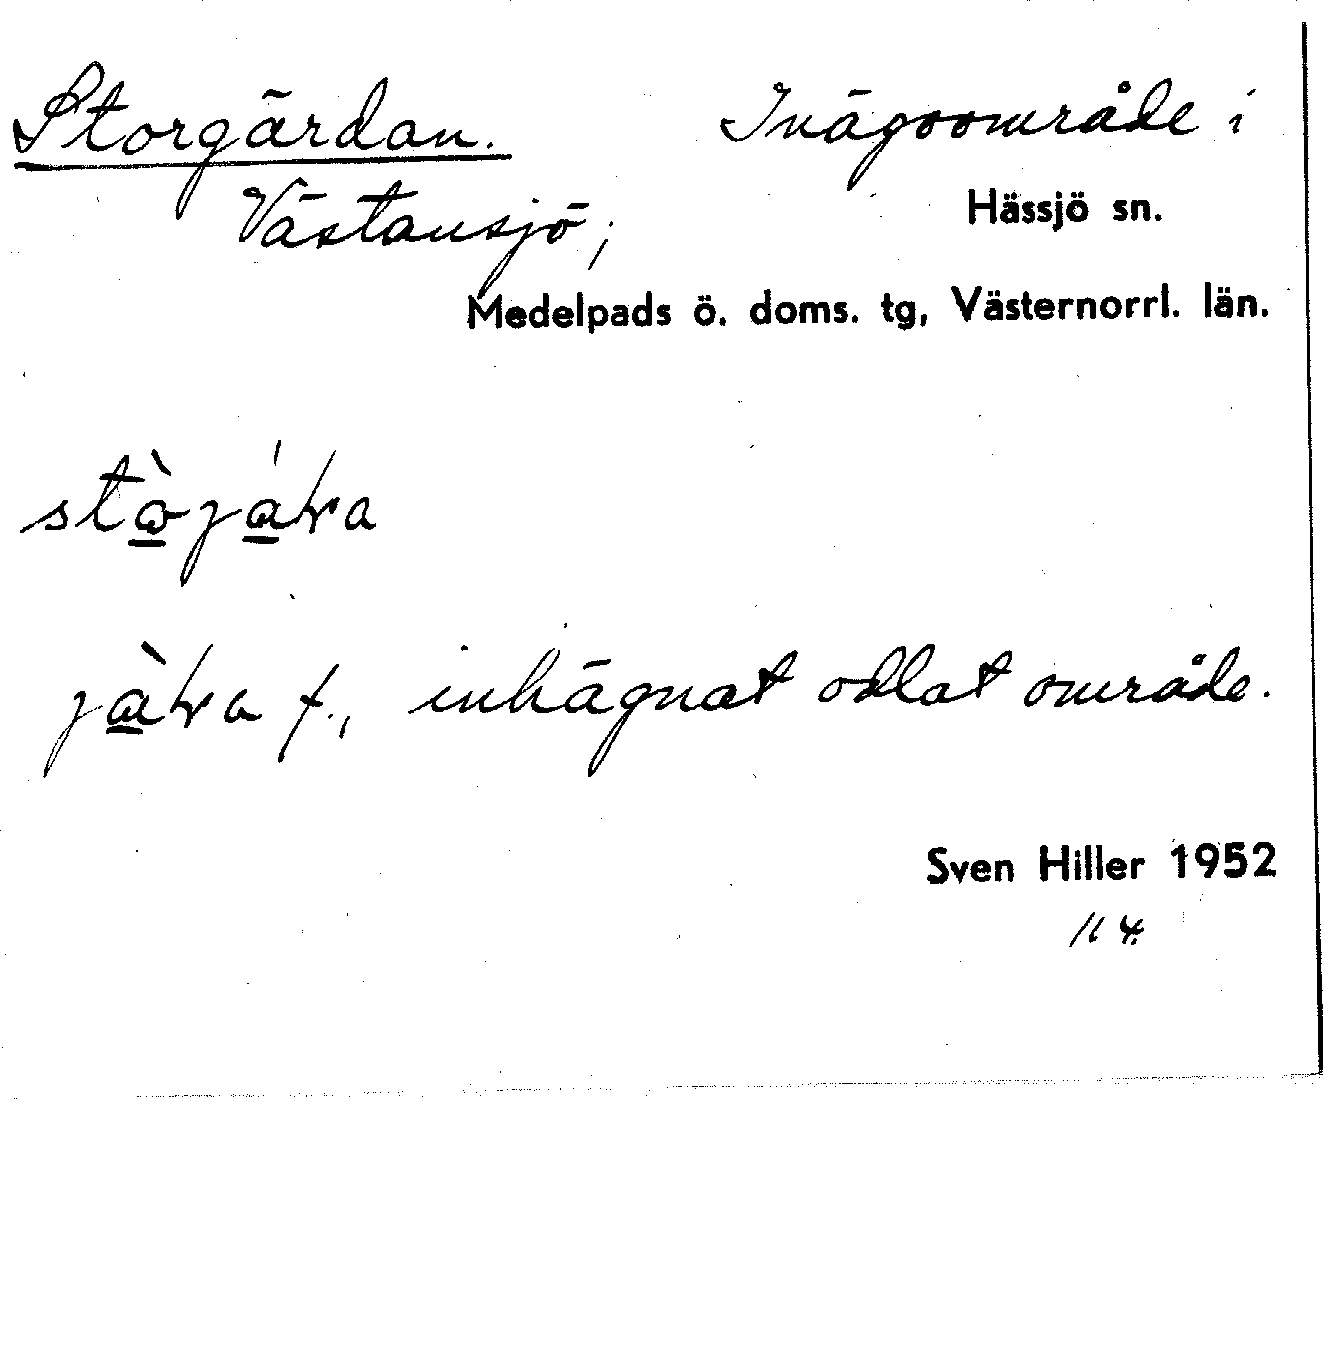 Storgärdan. Inägoområde i
Västansjö, Hässjö sn.
Medelpads ö. doms. tg, Västernorrl. län.
f., inhägnat odlat område.
Sven Hiller 1952